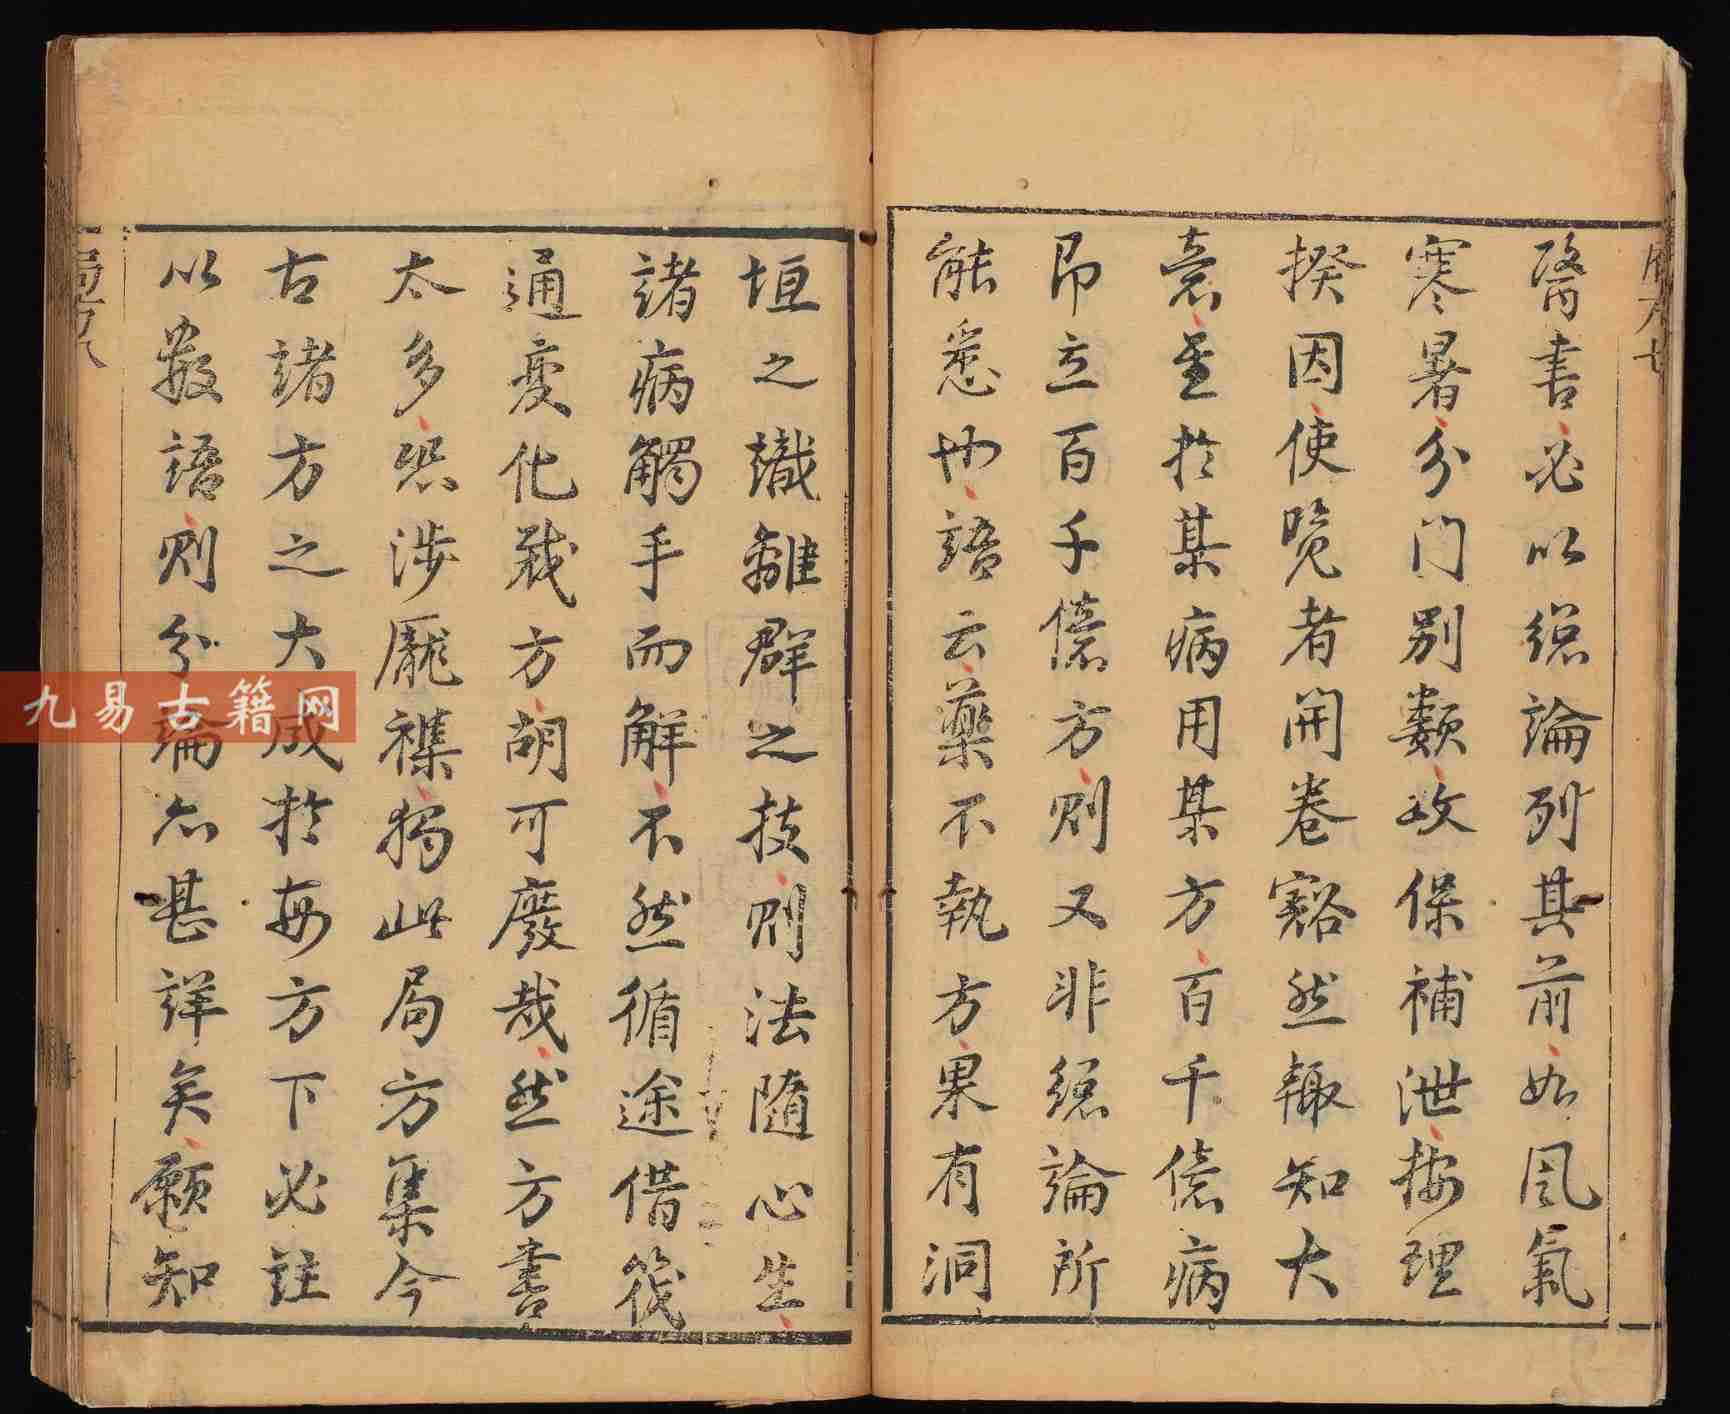 醫書必以緫論列其前如風氣
寒暑分门别類攻保補泄按理
揆因使覽者開卷豁然輙知大
意至扵某病用某方百千億病
即立百千億方則又非緫論所
能悉也語云藥不執方果有洞
垣之識離群之技則法隨心生
諸病觸手而解不然循途借筏
通变化裁方胡可廢哉然方書
太多恐涉厖襍獨此局方集今
古諸方之大成扵每方下必註
以數語則分論亦甚詳矣願知
九易古籍网